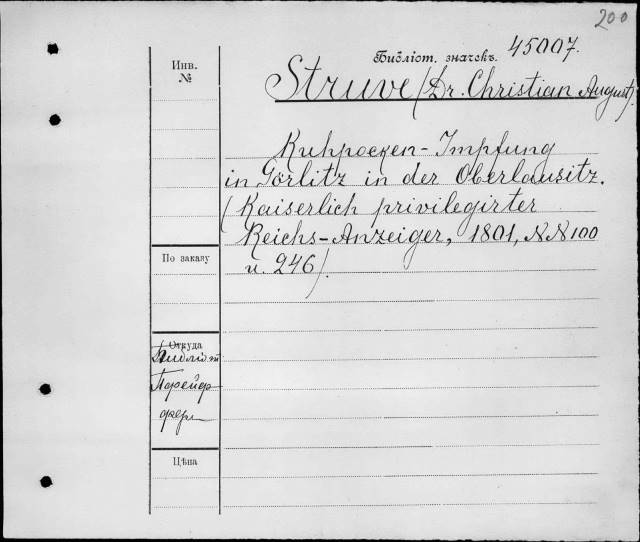 200
Инв.
№
Библіот. значекъ. 45007.
Struve (Dr. Christian August).
Kuhpocken-Impfung
in Görlitz in der Oberlausitz.
(Kaiserlich privilegirter
Reichs-Anzeiger, 1801, NN 100
u. 246).
По заказу
Откуда
Цѣна